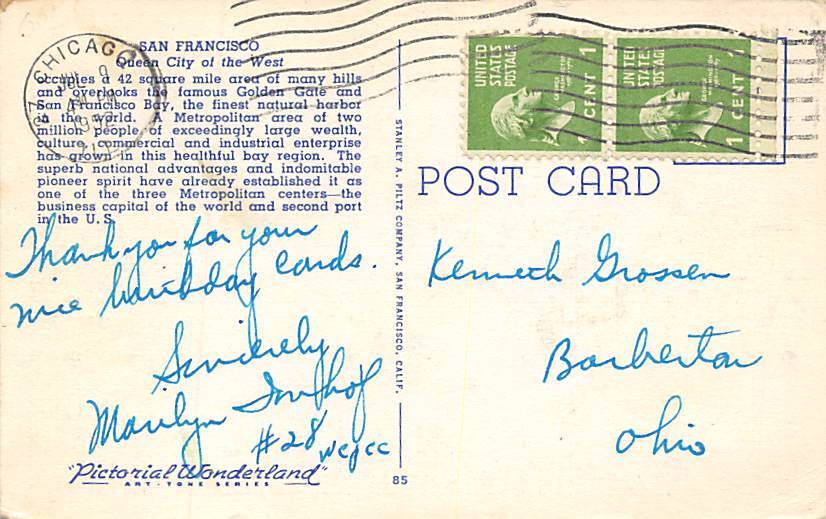 SAN FRANCISCO
Queen City of the West
occupies a 42 square mile area of many hills
and overlooks the famous Golden Gate and
San Francisco Bay, the finest natural harbor
in the world. A Metropolitan area of two
million people of exceedingly large wealth,
culture, commercial and industrial enterprise
has grown in this healthful bay region. The
superb national advantages and indomitable
pioneer spirit have already established it as
one of the three Metropolitan centers—the
business capital of the world and second port
in the U.S.
Thank you for your
nice birthday cards.
Sincerely
Marilyn Imhof
#28 wcpcc
"Pictorial Wonderland"
ART-TONE SERIES
CHICAGO
JUL 9
STANLEY A. PILTZ COMPANY, SAN FRANCISCO, CALIF.
85
UNITED
STATES
POSTAGE
1 CENT 1
UNITED
STATES
POSTAGE
1 CENT 1
POST CARD
Kenneth Grossen
Barberton
Ohio